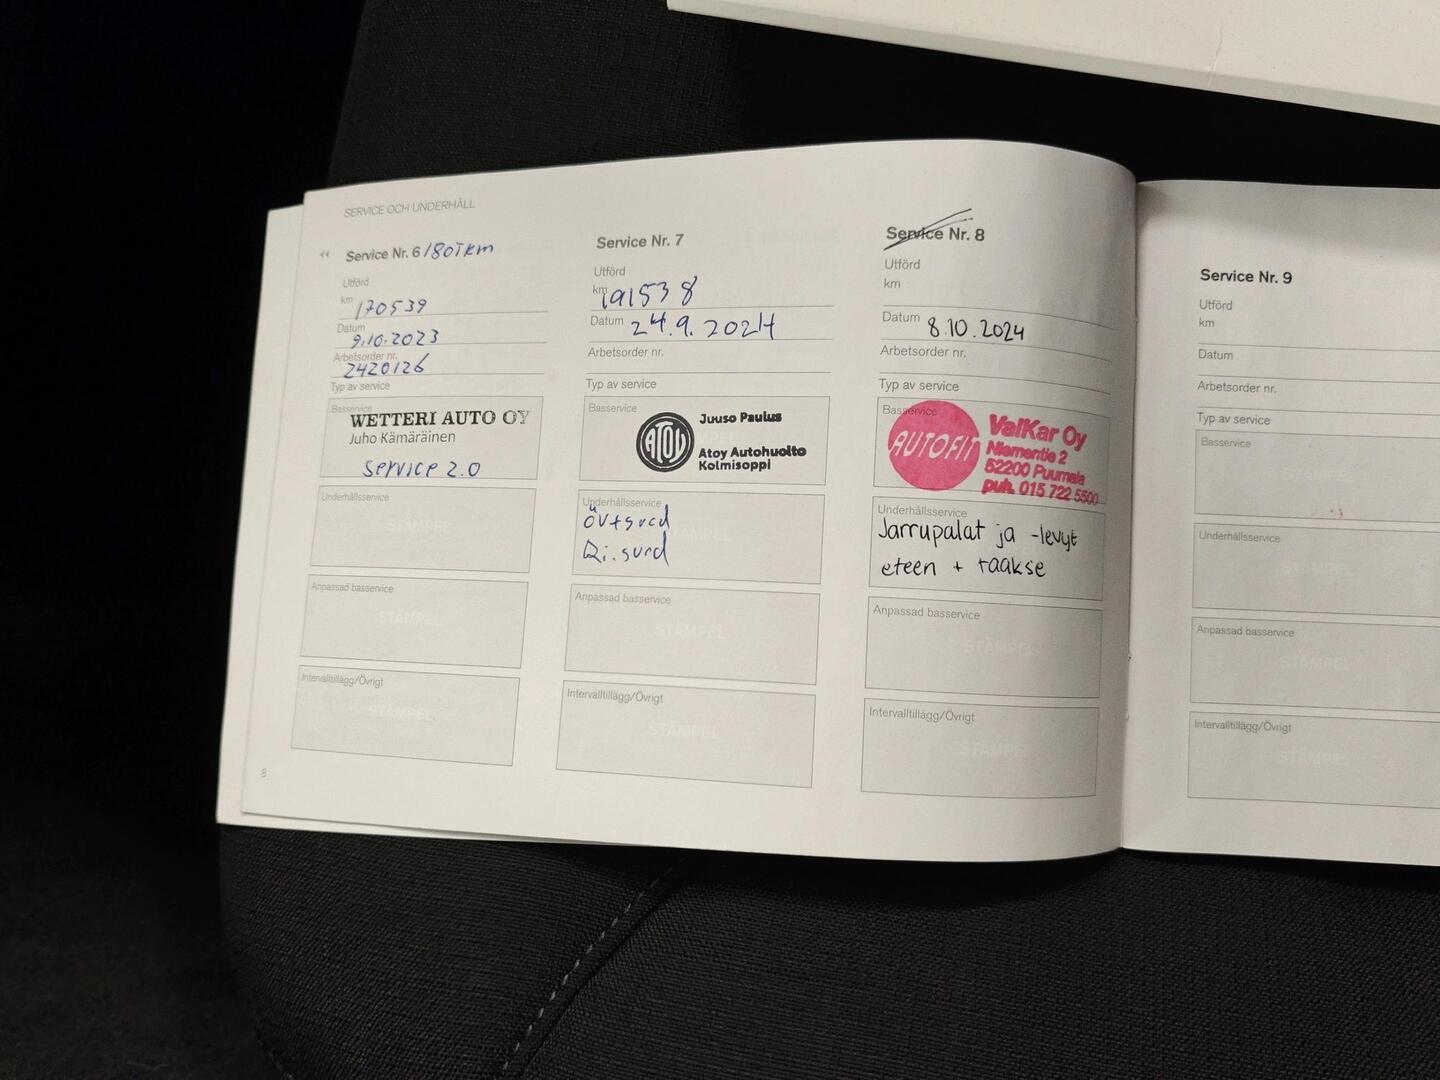 SERVICE OCH UNDERHÅLL
Service Nr. 6 / 180Tkm
Utförd
km 170539
Datum 9.10.2023
Arbetsorder nr. 2420126
Typ av service
Basservice
WETTERI AUTO OY
Juho Kämäräinen
Service 2.0
Underhållsservice
STÄMPEL
Anpassad basservice
STÄMPEL
Intervalltillägg/Övrigt
STÄMPEL
8
Service Nr. 7
Utförd
km 191538
Datum 24.9.2024
Arbetsorder nr.
Typ av service
Basservice
ATOY
Juuso Paulus
Atoy Autohuolto
Kolmisoppi
Underhållsservice
STÄMPEL
Anpassad basservice
STÄMPEL
Intervalltillägg/Övrigt
STÄMPEL
Service Nr. 8
Utförd
km
Datum 8.10.2024
Arbetsorder nr.
Typ av service
Basservice
AUTOFIT
ValKar Oy
Niementie 2
52200 Puumala
puh. 015 722 5500
Underhållsservice
Jarrupalat ja -levyt
eteen + taakse
Anpassad basservice
STÄMPEL
Intervalltillägg/Övrigt
STÄMPEL
Service Nr. 9
Utförd
km
Datum
Arbetsorder nr.
Typ av service
Basservice
STÄMPEL
Underhållsservice
STÄMPEL
Anpassad basservice
STÄMPEL
Intervalltillägg/Övrigt
STÄMPEL